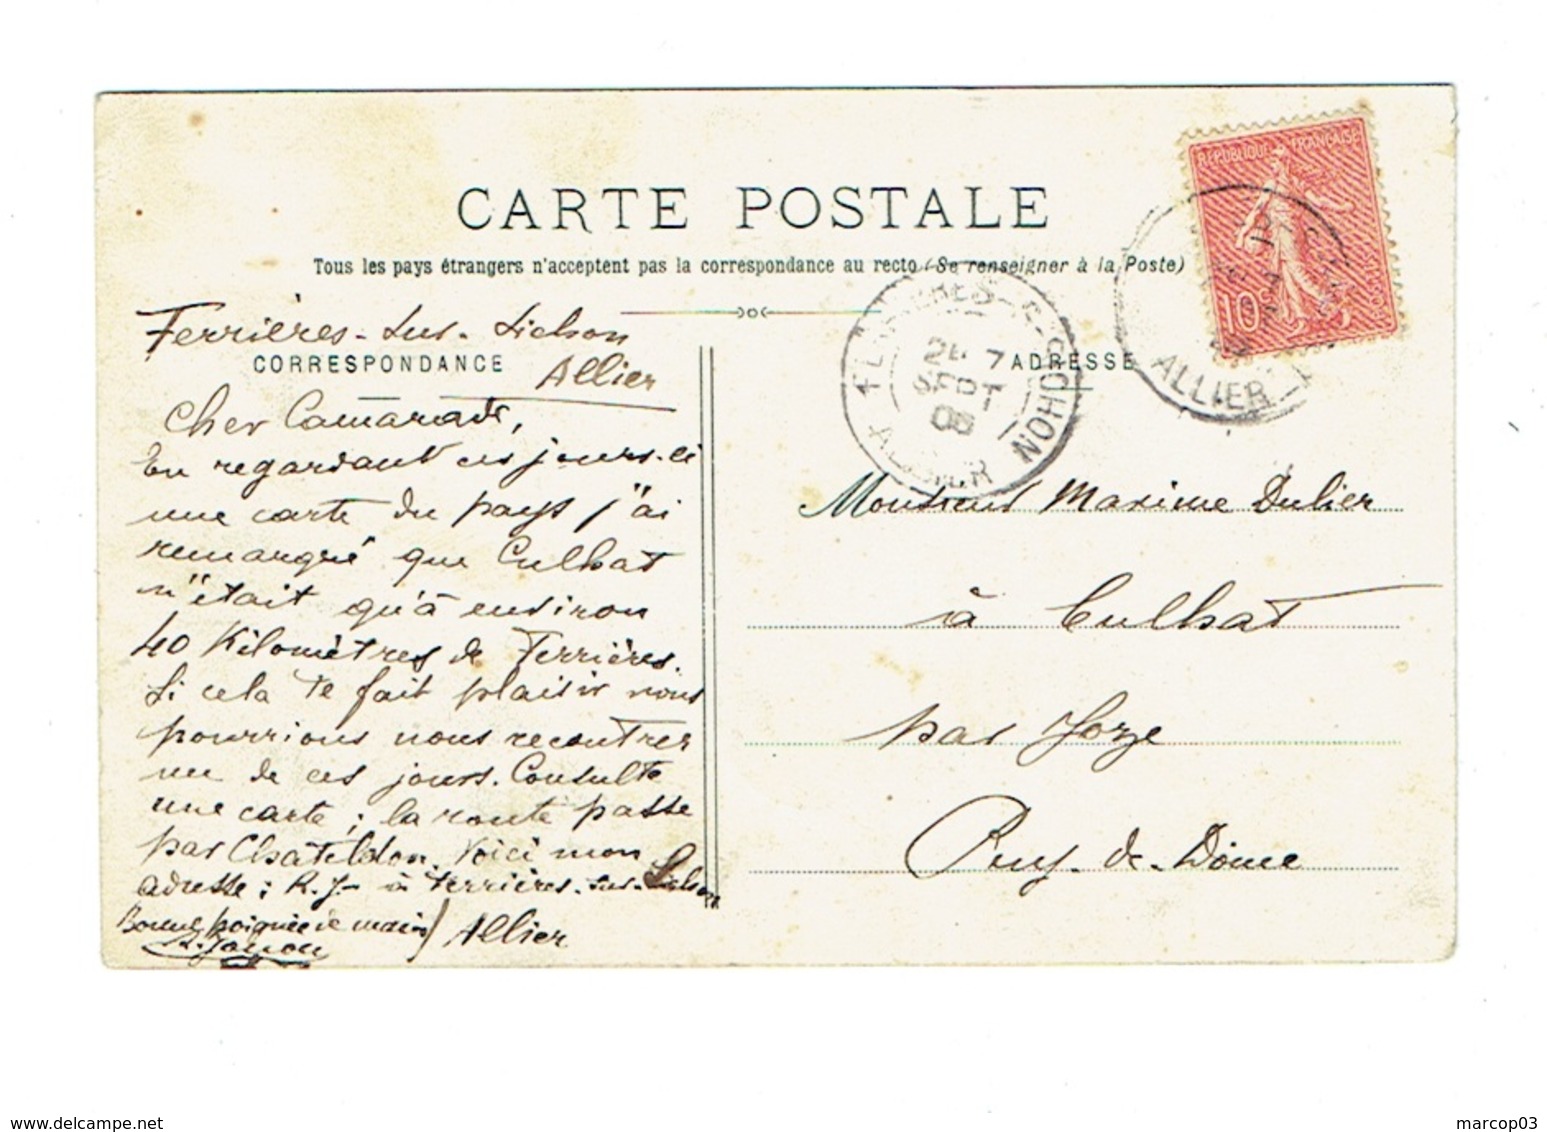 CARTE POSTALE
Tous les pays étrangers n'acceptent pas la correspondance au recto (Se renseigner à la Poste)
CORRESPONDANCE
ADRESSE
RÉPUBLIQUE FRANÇAISE
10
FERRIÈRES-S-SICHON
SEPT
ALLIER
ALLIER
Ferrières-sur-Sichon
Allier
Cher Camarade,
En regardant ces jours-ci
une carte du pays j'ai
remarqué que Culhat
n'était qu'à environ
40 Kilomètres de Ferrières.
Si cela te fait plaisir nous
pourrions nous recontrer
un de ces jours. Consulte
une carte ; la route passe
par Chateldon. Voici mon
adresse : R. J- à Ferrières-sur-Sichon
Allier
Bonne poignée de main
Monsieur Maxime Dulier
à Culhat
par Joze
Puy-de-Dôme
www.delcampe.net
marcop03